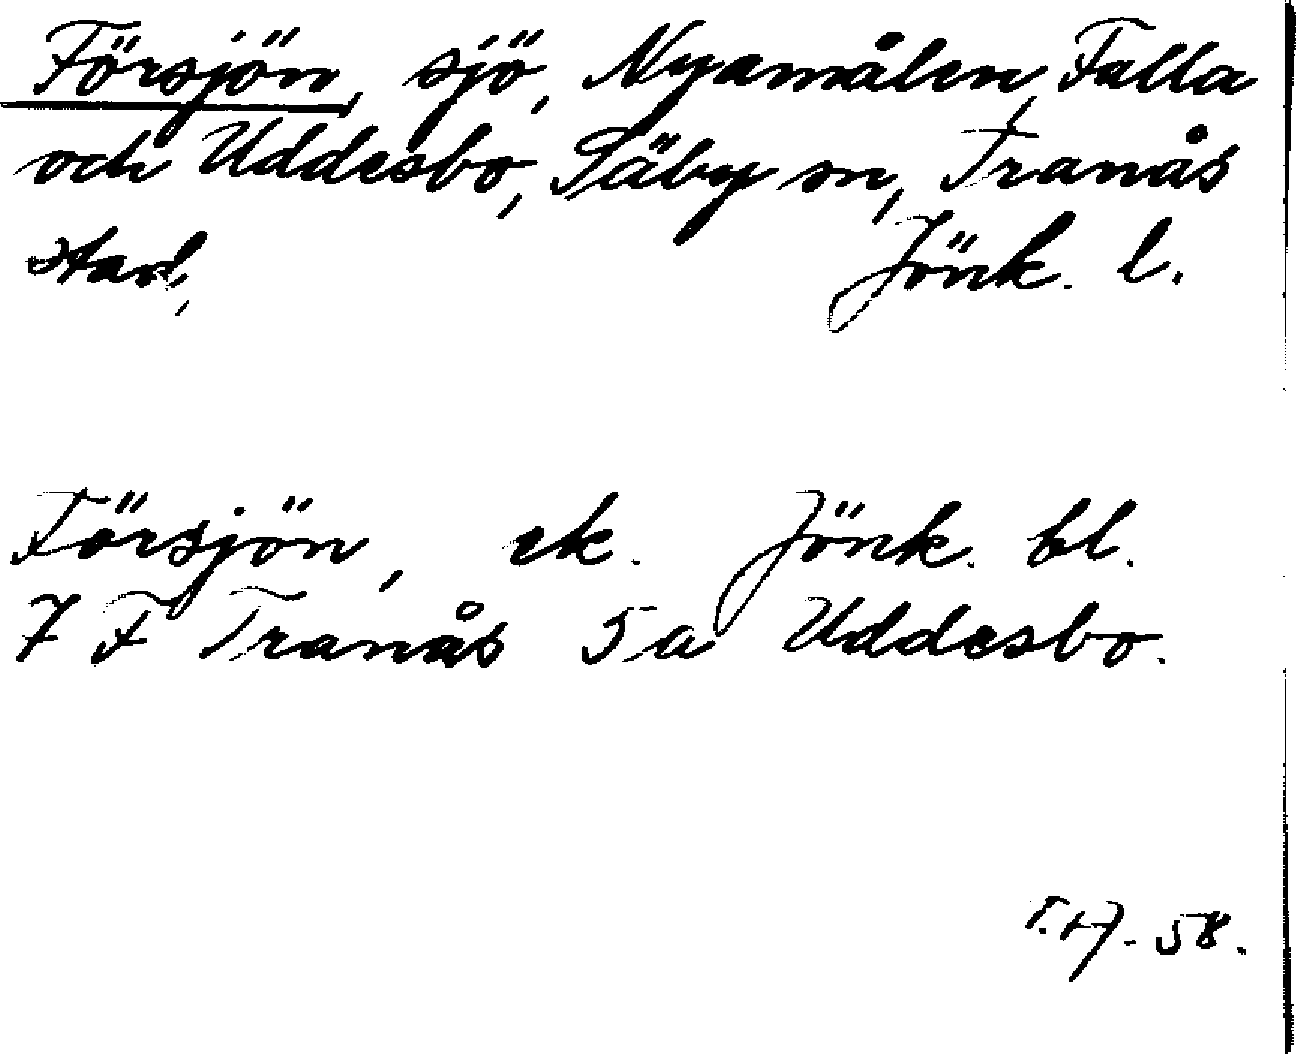 Försjön, sjö, Nyamålen, Falla
och Uddesbo, Säby sn, Tranås
stad, Jönk. l.
Försjön, ek. Jönk. bl.
7 F Tranås 5 a Uddesbo.
T.H. 58.